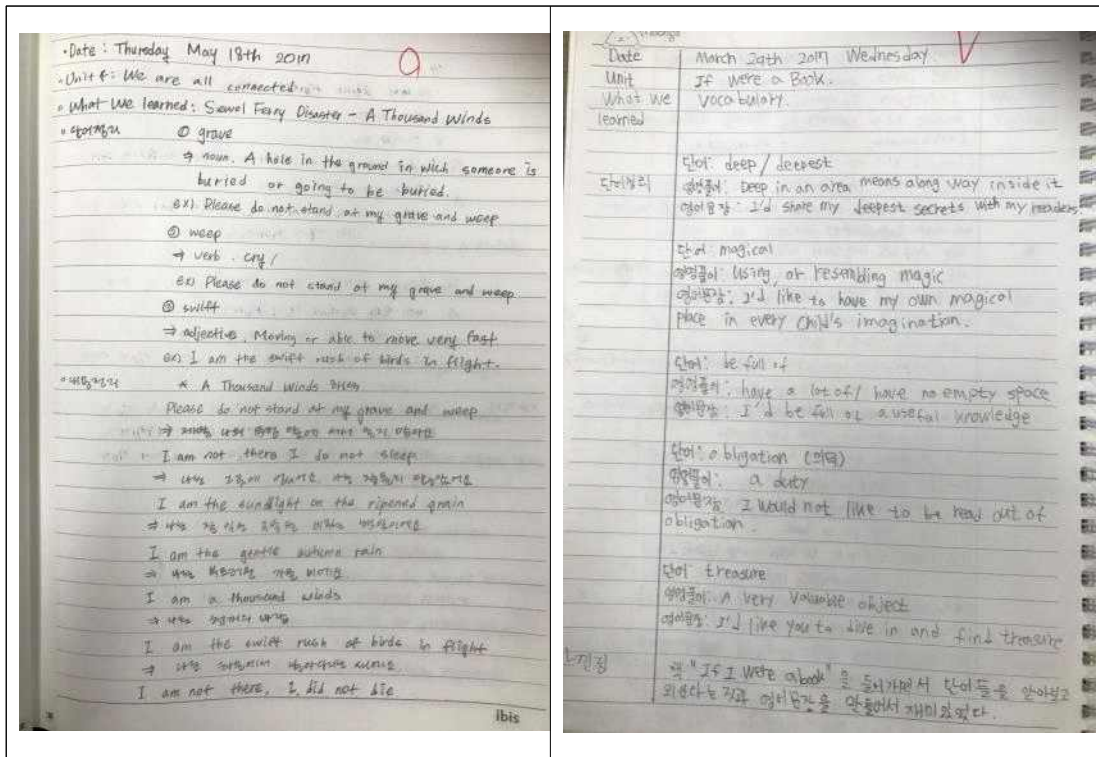 ·Date : Thursday May 18th 2017
·Unit 4: We are all connected
·What We learned: Sewol Ferry Disaster - A Thousand Winds
·단어정리 ① grave
⇒ noun. A hole in the ground in wich someone is
buried or going to be buried.
ex) Please do not stand at my grave and weep
② weep
⇒ verb. cry
ex) Please do not stand at my grave and weep
③ swift
⇒ adjective. Moving or able to move very fast
ex) I am the swift rush of birds in flight.
·내용정리 * A Thousand Winds 해석
Please do not stand at my grave and weep
⇒ 제발 나의 무덤 앞에
I am not there I do not sleep
⇒ 나는
I am the sundlight on the ripened grain
⇒ 나는
I am the gentle autumn rain
⇒ 나는 부드러운 가을 비에요
I am a thousand winds
⇒ 나는 천개의 바람
I am the swift rush of birds in flight
⇒ 나는
I am not there, I did not die
ibis
Date March 29th 2017 Wednesday
Unit If were a Book.
What we vocabulary.
learned
단어: deep / deepest
단어정리 영영풀이: Deep in an area means along way inside it
영어문장: I'd share my deepest secrets with my readers.
단어: magical
영영풀이: Using, or resembling magic
영어문장: I'd like to have my own magical
place in every child's imagination.
단어: be full of
영영풀이: have a lot of / have no empty space
영어문장: I'd be full of a useful knowledge
단어: obligation (의무)
영영풀이: a duty
영어문장: I would not like to be read out of
obligation.
단어 treasure
영영풀이: A very valuable object
영어문장: I'd like you to dive in and find treasure
느낀점 책 "If I were a book"을 들어가면서 단어들을 알아보고
외운다는 것과 영어문장을 만들어서 재미있었다.